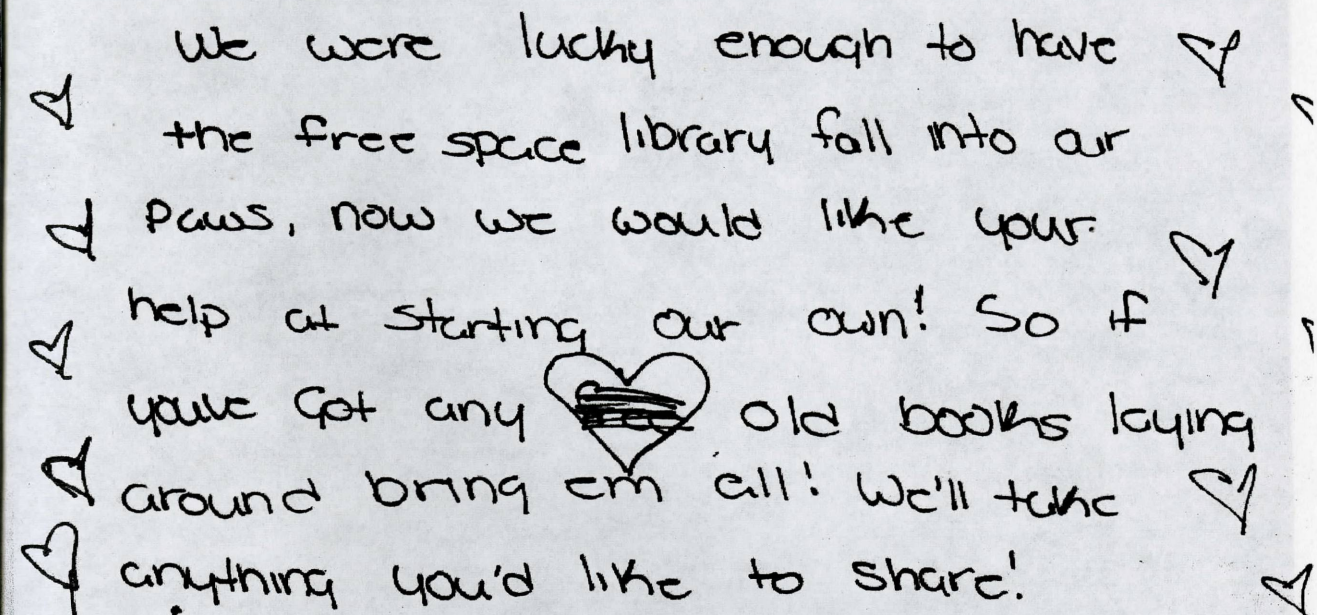 We were lucky enough to have
the free space library fall into our
paws, now we would like your
help at starting our own! So if
youve Got any old books laying
around bring em all! We'll take
anything you'd like to share!